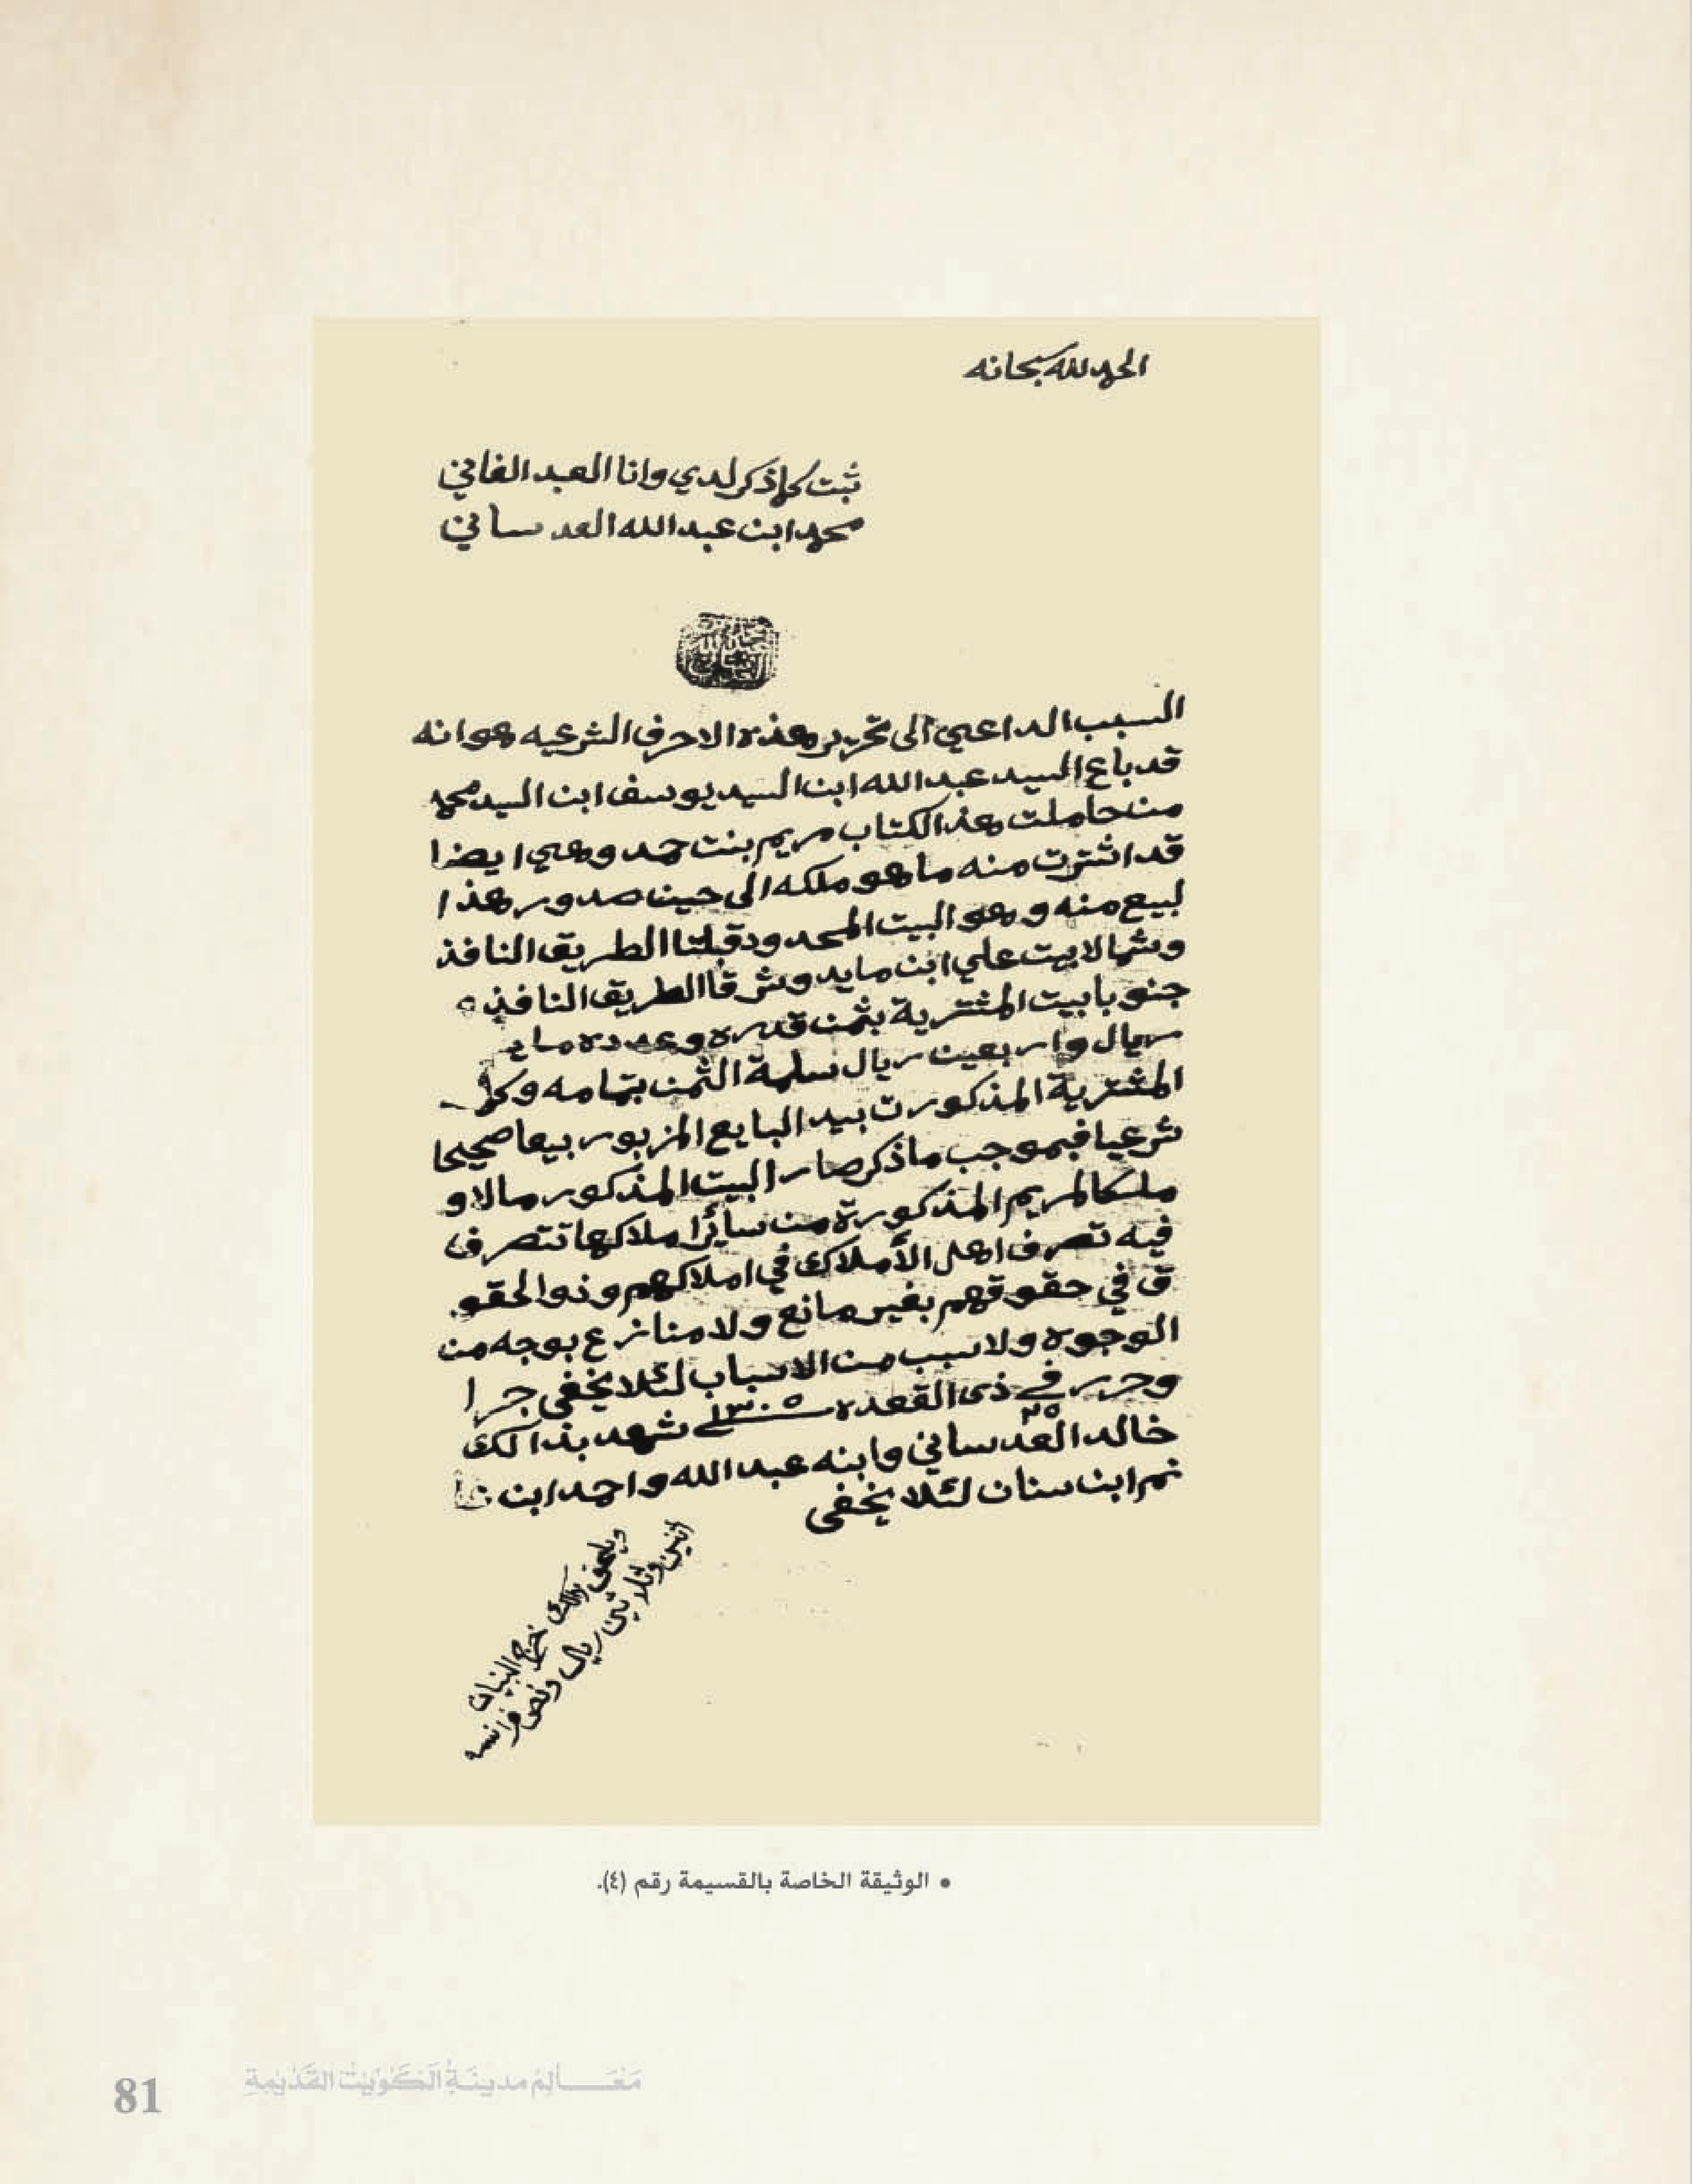 الحمد لله سبحانه
ثبت كما ذكر لدي وانا العبد الفاني
محمد ابن عبد الله العدساني
السبب الداعي الى تحرير هذه الاحرف الشرعيه هو انه
قد باع السيد عبد الله ابن السيد يوسف ابن السيد محمد
من حاملت هذ الكتاب مريم بنت حمد وهي ايضا
قد اشترت منه ما هو ملكه الى حين صدور هذا
لبيع منه وهو البيت المحدود قبلتا الطريق النافذ
وشمالا بيت علي ابن مايد وشرقا الطريق النافذ
جنوبا بيت المشترية بثمن قدره وعدده ماية
ريال واربعين ريال سلمة الثمن بتمامه وكماله
المشترية المذكورت بيد البايع المزبور بيعا صحيحا
شرعيا فبموجب ما ذكر صار البيت المذكور مالا و
ملكا لمريم المذكورة من ساير املاكها تتصرف
فيه تصرف اهل الأملاك في املاكهم وذوا لحقو
ق في حقوقهم بغير مانع ولا منازع بوجه من
الوجوه ولا سبب من الاسباب لئلا يخفى جرا
وحرر في ذى القعده ٢٥ سنة ١٣٠٥ شهد بذالك
خالد العدساني وابنه عبد الله واحمد ابن
نمر ابن سنان لئلا يخفى
ويلحق ذالك خرج البنيان
اثنين وثلاثين ريال ونص فرانسه
• الوثيقة الخاصة بالقسيمة رقم (٤).
مَعَالِمُ مدينَةِ الكُوَيْت القَدْيمَةِ
81